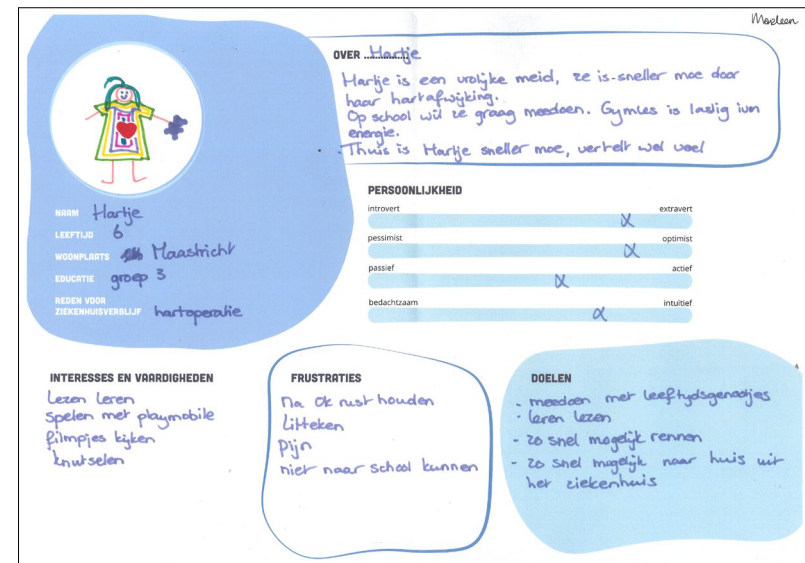 Marleen
OVER Hartje
Hartje is een vrolijke meid, ze is sneller moe door
haar hartafwijking.
Op school wil ze graag meedoen. Gymles is lastig ivm
energie.
Thuis is Hartje sneller moe, vertelt wel veel
NAAM Hartje
LEEFTIJD 6
WOONPLAATS Maastricht
EDUCATIE groep 3
REDEN VOOR
ZIEKENHUISVERBLIJF hartoperatie
PERSOONLIJKHEID
introvert extravert
pessimist optimist
passief actief
bedachtzaam intuïtief
INTERESSES EN VAARDIGHEDEN
Lezen leren
spelen met playmobile
filmpjes kijken
knutselen
FRUSTRATIES
Na OK rust houden
Litteken
Pijn
niet naar school kunnen
DOELEN
- meedoen met leeftijdsgenootjes
- leren lezen
- zo snel mogelijk rennen
- zo snel mogelijk naar huis uit
het ziekenhuis